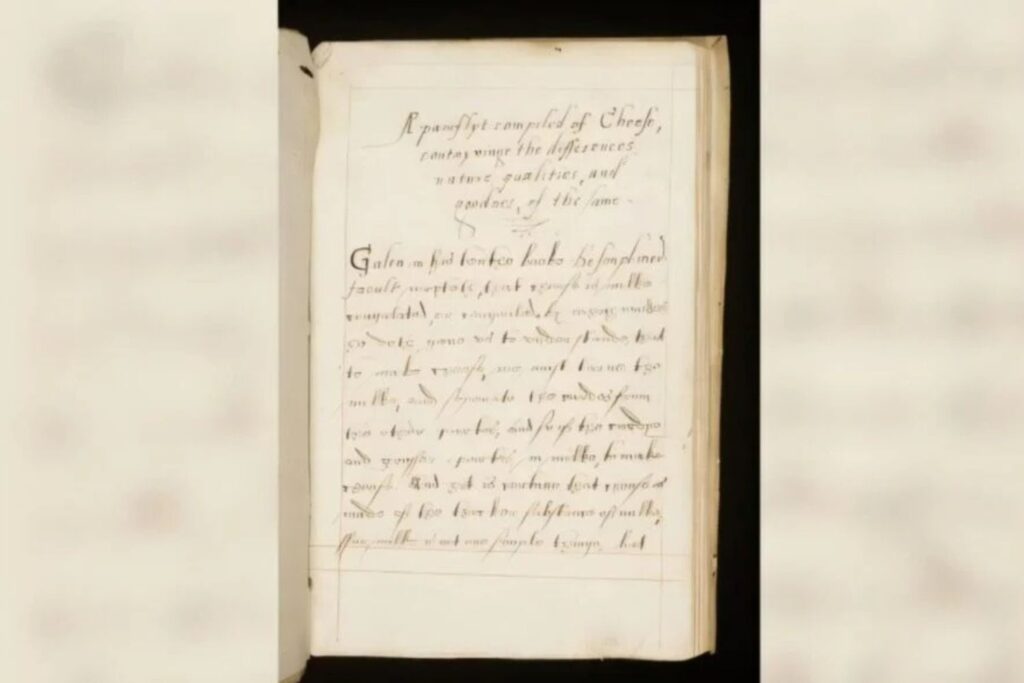 A pamflyt compiled of Cheese,
contayninge the differences,
nature, qualities, and
goodnes, of the same
Galen in his booke de simpl: med:
facult: that cheese is milke
coagulated, or by
to understande, that
to make cheese, we must turne the
milke, and seperate the cruddes from
the other partes, and so is the
and grosser partes, in milke, to make
cheese. And yet is certaine that cheese is
made of the substance of milke,
ffor milke is not one simple thinge, but